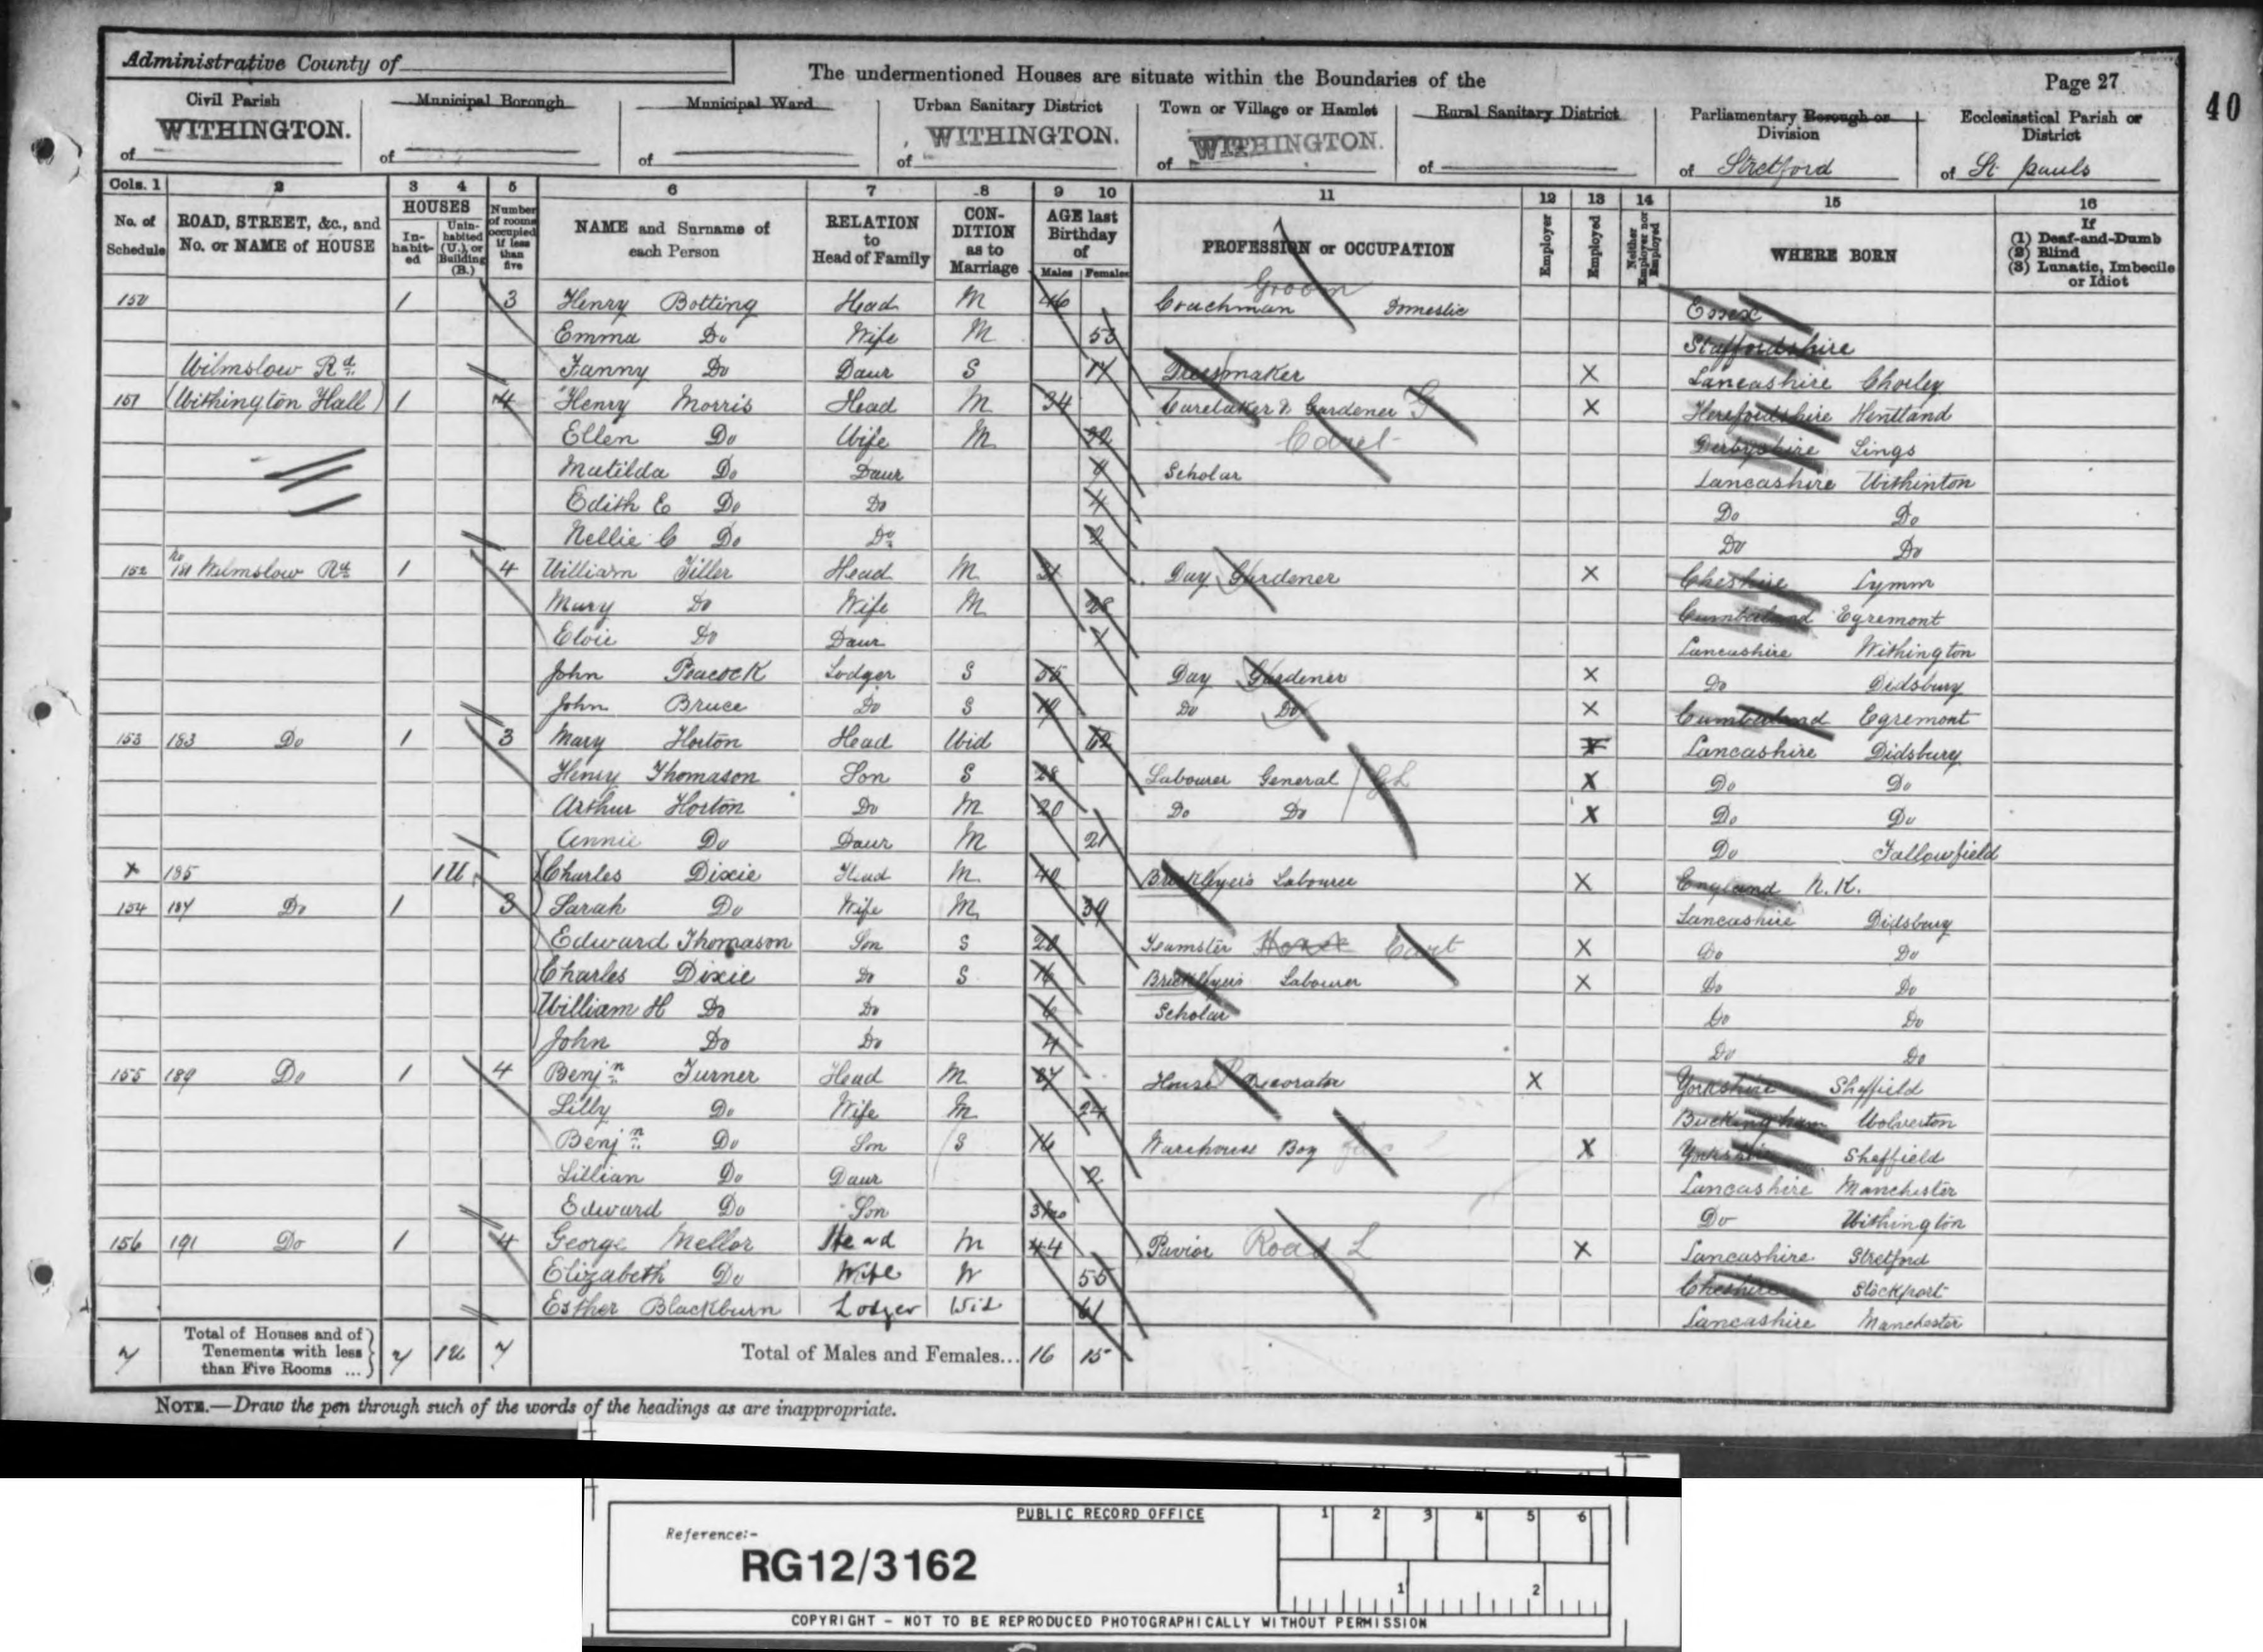 Administrative County of
The undermentioned Houses are situate within the Boundaries of the
Page 27
40
Civil Parish of WITHINGTON.
Municipal Borough of
Municipal Ward of
Urban Sanitary District of WITHINGTON.
Town or Village or Hamlet of WITHINGTON.
Rural Sanitary District of
Parliamentary Borough or Division of Stretford
Ecclesiastical Parish or District of St. Pauls
Cols. 1 2 3 4 5 6 7 8 9 10 11 12 13 14 15 16
No. of Schedule
ROAD, STREET, &c., and No. or NAME of HOUSE
HOUSES
In-habit-ed
Unin-habited (U.), or Building (B.)
Number of rooms occupied if less than five
NAME and Surname of each Person
RELATION to Head of Family
CON-DITION as to Marriage
AGE last Birthday of
Males Females
PROFESSION or OCCUPATION
Employer
Employed
Neither Employer nor Employed
WHERE BORN
If (1) Deaf-and-Dumb (2) Blind (3) Lunatic, Imbecile or Idiot
150 1 3 Henry Botting Head M 46 Coachman Groom Domestic Essex
Emma Do Wife M 53 Staffordshire
Wilmslow Rd. Fanny Do Daur S 17 Dressmaker X Lancashire Chorley
151 (Withington Hall) 1 4 Henry Morris Head M 34 Caretaker & Gardener G X Herefordshire Hentland
Ellen Do Wife M 32 Derbyshire Lings
Matilda Do Daur 9 Scholar Lancashire Withinton
Edith E Do Do 4 Do Do
Nellie C Do Do 2 Do Do
152 No 181 Wilmslow Rd 1 4 William Tiller Head M 31 Day Gardener X Cheshire Lymm
Mary Do Wife M 28 Cumberland Egremont
Eloie Do Daur 1 Lancashire Withington
John Peacock Lodger S 55 Day Gardener X Do Didsbury
John Bruce Do S 19 Do Do X Cumberland Egremont
153 183 Do 1 3 Mary Horton Head Wid 62 X Lancashire Didsbury
Henry Thomason Son S 28 Labourer General GL X Do Do
Arthur Horton Do M 20 Do Do X Do Do
Annie Do Daur M 21 Do Fallowfield
X 185 1U Charles Dixie Head M 40 Bricklyers Labourer X England N.K.
154 187 Do 1 3 Sarah Do Wife M 39 Lancashire Didsbury
Edward Thomason Son S 20 Teamster Horse Cart X Do Do
Charles Dixie Do S 16 Bricklyers Labourer X Do Do
William H Do Do 6 Scholar Do Do
John Do Do 4 Do Do
155 189 Do 1 4 Benjn Turner Head M 37 House Decorator X Yorkshire Sheffield
Lilly Do Wife M 24 Buckingham Wolverton
Benjn Do Son S 16 Warehouse Boy X Yorkshire Sheffield
Lillian Do Daur 2 Lancashire Manchester
Edward Do Son 3mo Do Withington
156 191 Do 1 4 George Mellor Head M 44 Pavior Road L X Lancashire Stretford
Elizabeth Do Wife W 55 Cheshire Stockport
Esther Blackburn Lodger Wid 61 Lancashire Manchester
7 Total of Houses and of Tenements with less than Five Rooms ... 7 1U 7 Total of Males and Females... 16 15
NOTE.—Draw the pen through such of the words of the headings as are inappropriate.
PUBLIC RECORD OFFICE
1 2 3 4 5 6
Reference:-
RG12/3162
1 2
COPYRIGHT - NOT TO BE REPRODUCED PHOTOGRAPHICALLY WITHOUT PERMISSION